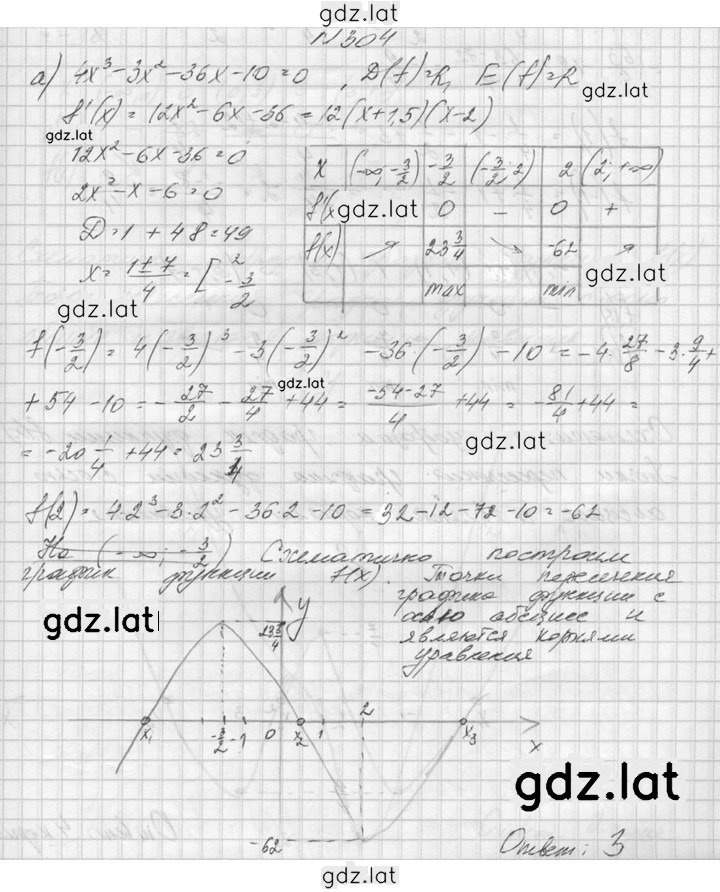 gdz.lat
N304
а) 4x³-3x²-36x-10=0 , D(f)=R, E(f)=R
gdz.lat
f'(x) = 12x²-6x-36 = 12(x+1,5)(x-2)
gdz.lat
12x²-6x-36=0
2x²-x-6=0
D=1+48=49
x= (1±7)/4 = [ 2
-3/2
gdz.lat
x | (-∞; -3/2) | -3/2 | (-3/2; 2) | 2 | (2; +∞)
f'(x | gdz.lat | 0 | - | 0 | +
f(x) | ↗ | 23 3/4 | ↘ | -62 | ↗
gdz.lat
max | min
f(-3/2) = 4(-3/2)³ - 3(-3/2)² - 36·(-3/2) - 10 = -4·27/8 - 3·9/4 +
gdz.lat
+ 54 - 10 = -27/2 - 27/4 + 44 = (-54-27)/4 + 44 = -81/4 + 44 =
gdz.lat
= -20 1/4 + 44 = 23 3/4
f(2) = 4·2³ - 3·2² - 36·2 - 10 = 32 - 12 - 72 - 10 = -62
На (-∞; -3/2) Схематично построим
график функции f(x). Точки пересечения
графика функции с
осью абсцисс и
являются корнями
уравнения
gdz.lat
23 3/4
y
x₁ -3/2 -1 0 x₂ 1 2 x₃ x
gdz.lat
-62
Ответ: 3
gdz.lat